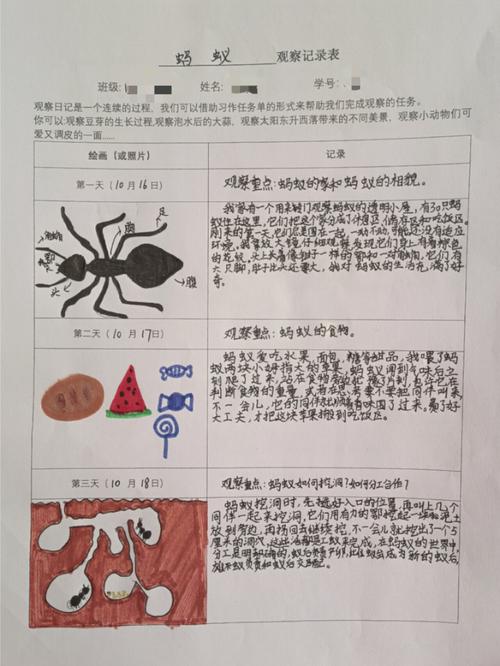 蚂 蚁 观察记录表
班级: 姓名: 学号:
观察日记是一个连续的过程，我们可以借助习作任务单的形式来帮助我们完成观察的任务。
你可以:观察豆芽的生长过程,观察泡水后的大蒜，观察太阳东升西落带来的不同美景，观察小动物们可
爱又调皮的一面......
绘画（或照片） 记录
第一天（10月16日）
观察重点:蚂蚁的家和蚂蚁的相貌。
足
胸
腹
头
我家有一个用来专门观察蚂蚁的透明小屋，有30只蚂
蚁住在这里，它们把这个家分成了休息区、储存区和吃饭区。
刚来的第一天，它们总是围在一起，一动不动，可能还没有适应
环境。我拿放大镜仔细观察，发现它们身上有着棕色
的花纹，头上长着像钳子一样的颚和一对触角，它们有
六只脚，肚子比头还要大，我对蚂蚁的生活充满了好
奇。
第二天（10月17日）
观察重点:蚂蚁的食物。
蚂蚁爱吃水果，面包，糖等甜品，我喂了蚂
蚁两块小拇指大的苹果，蚂蚁闻到气味后立
刻爬了过来，站在食物旁犹豫了片刻，也许它在
判断食物的重量，或者在思考要不要把同伴叫来
不一会儿，它的同伴就顺着味围了过来。费了好
大工夫，才把这块苹果搬到吃饭区。
第三天（10月18日）
观察重点:蚂蚁如何挖洞?如何分工合作?
蚂蚁挖洞时，先选好入口的位置，再叫上几个
同伴一起来挖洞，它们用有力的颚挖起一块
放到旁边，再拐回去继续挖，不一会儿就挖出了一个5
厘米的洞穴，这些活都是工蚁来完成，在蚂蚁的世界中
分工是明确的，蚁后负责产卵，
雄蚁负责和蚁后交配。